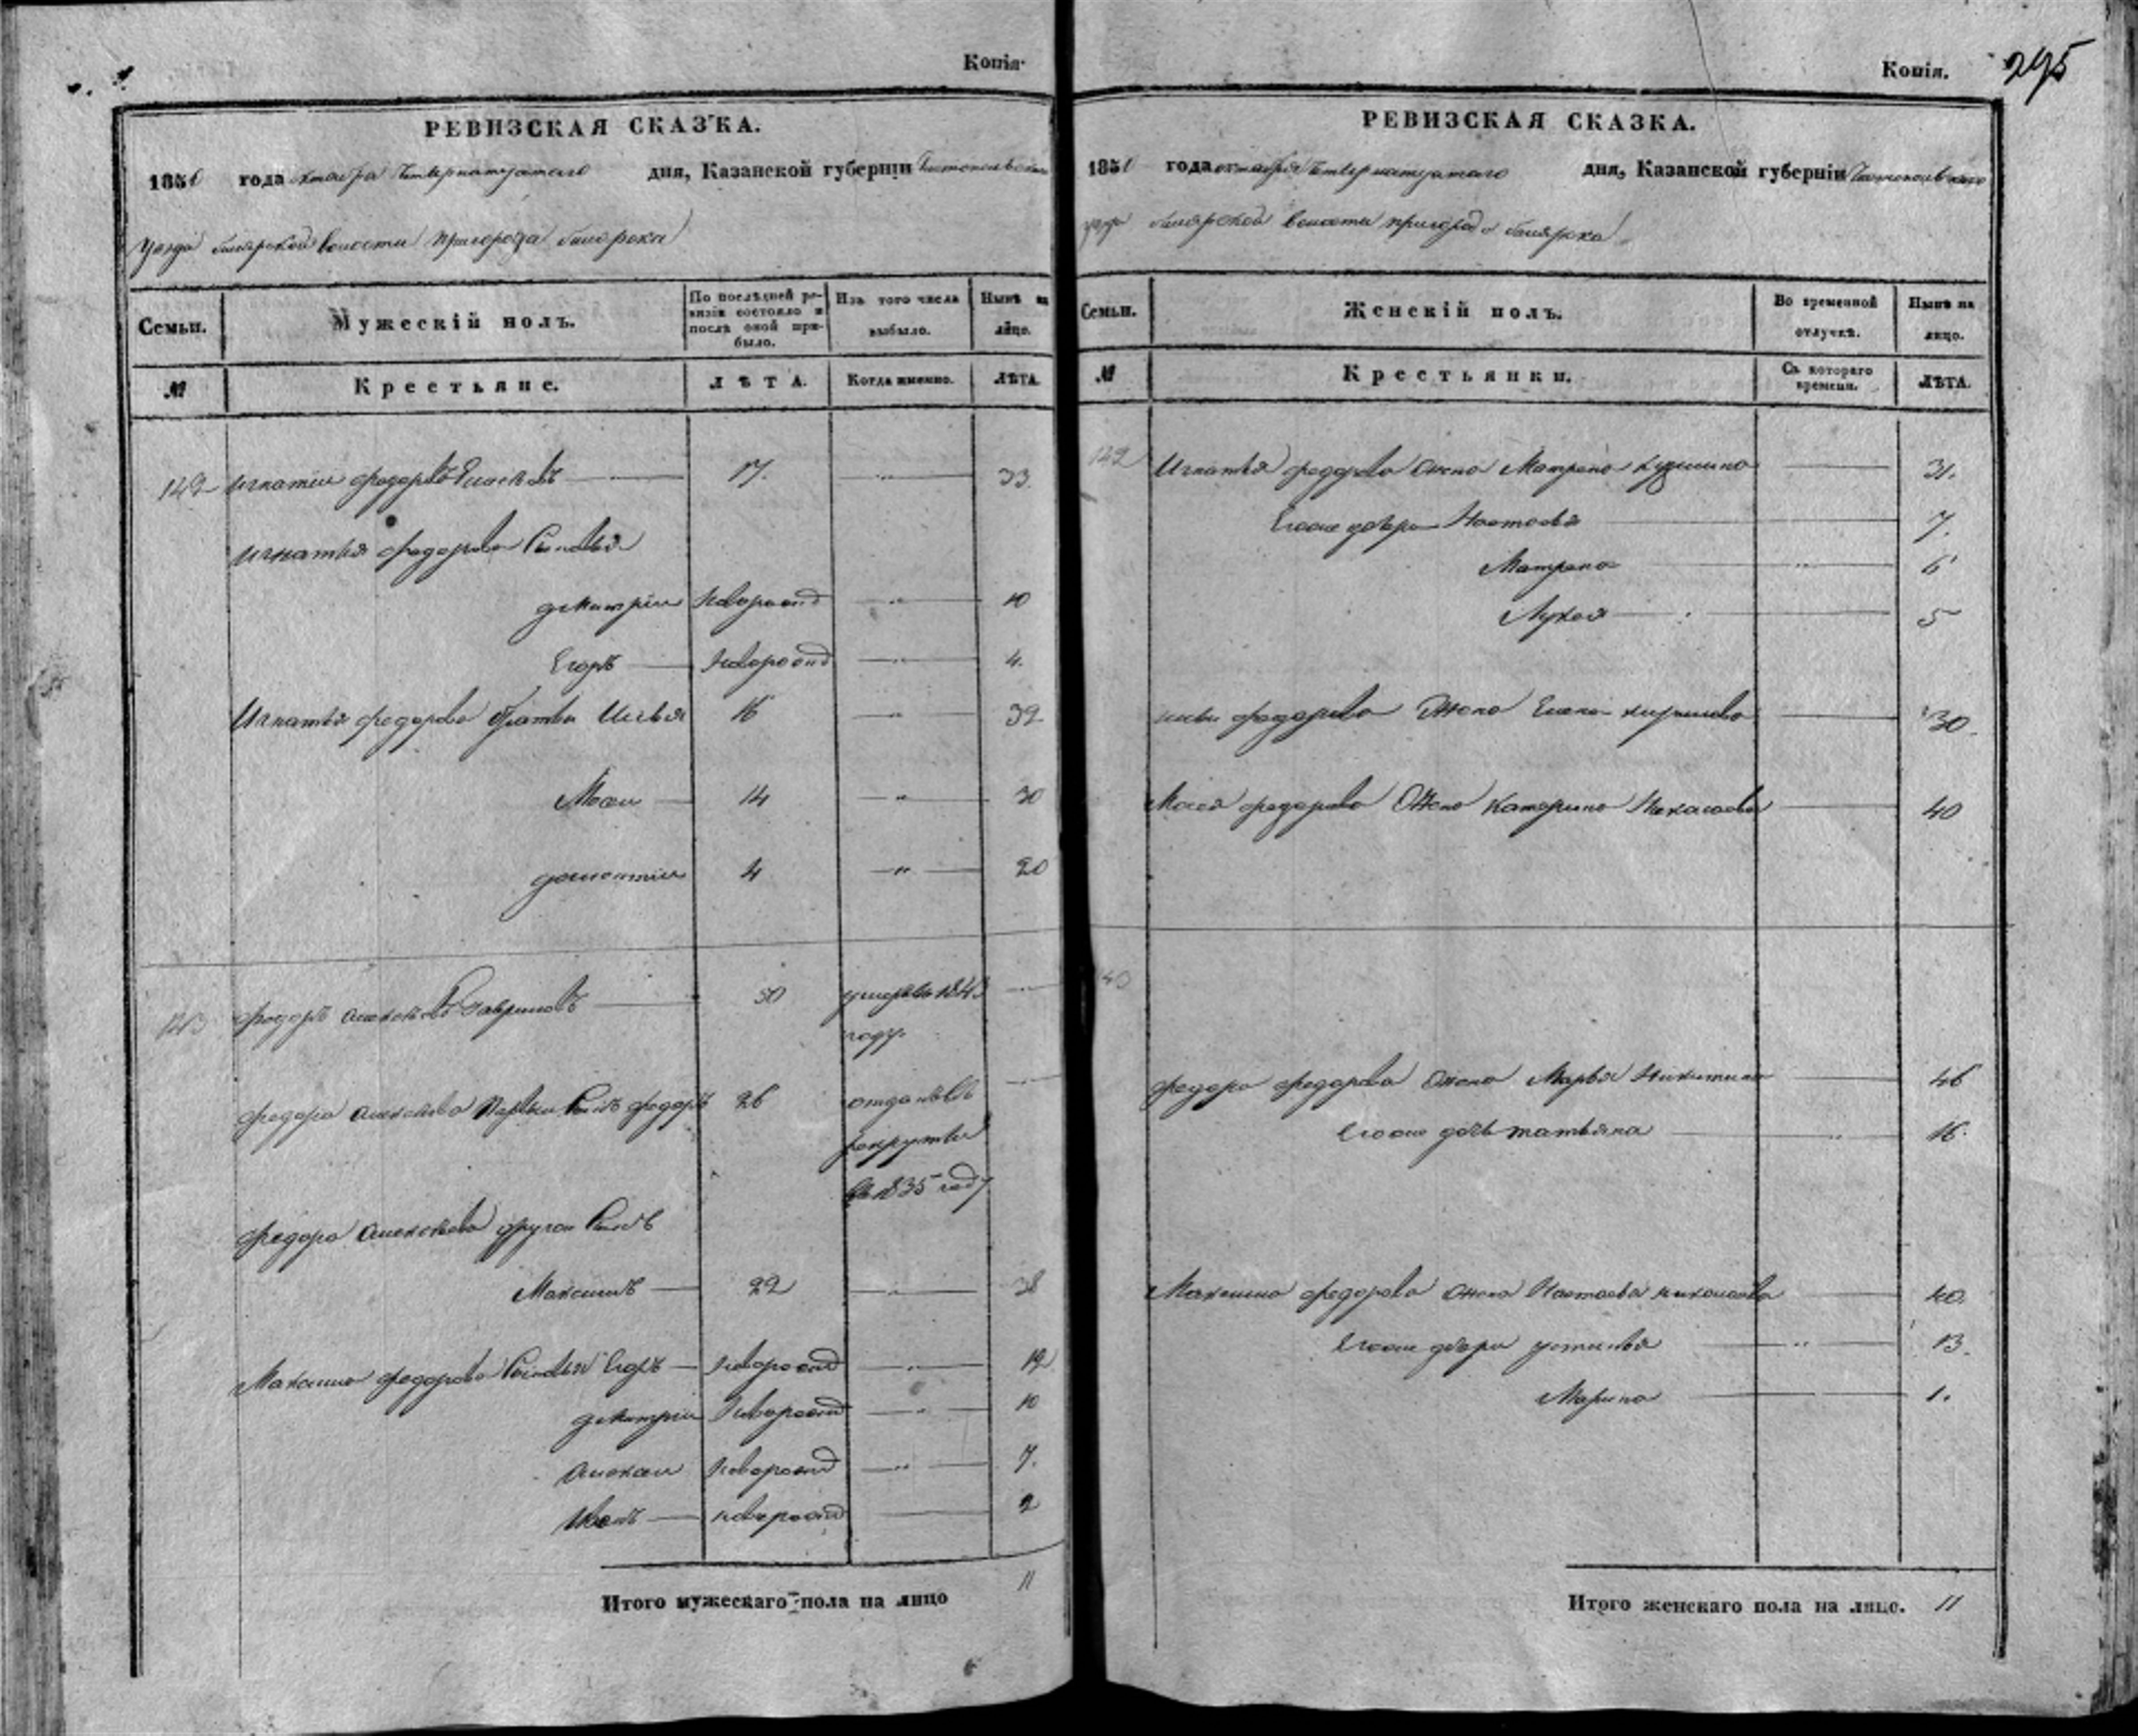 Копія.
РЕВИЗСКАЯ СКАЗКА.
1850 года октября четвертаго дня, Казанской губерніи Чистопольскаго
уезда билярской волости пригорода билярска
Семьи.
Мужескій полъ.
По послѣдней ре-
визіи состояло и
послѣ оной при-
было.
Изъ того числа
выбыло.
Нынѣ на
лицо.
№
Крестьяне.
ЛѢТА.
Когда именно.
ЛѢТА.
142 игнатій федоровъ 17. 33.
игнатья федорова сыновья
дмитрій новорожд 10
Егоръ новорожд 4.
Игнатья федорова братья Илья 16 32
Мосеи 14 30
дементіи 4 20
143 федоръ алексѣевъ Гавриловъ 50 умеръ въ 1843
году.
федора алексѣева первыи сынъ федоръ 26 отданъ въ
рекруты
въ 1835 году
федора алексѣева другои сынъ
Максимъ 22 38
Максима федорова сыновья Егоръ новорожд 12
дмитрии новорожд 10
алексеи новорожд 7.
Иванъ новорожд 2
Итого мужескаго пола на лицо 11
Копія. 295
РЕВИЗСКАЯ СКАЗКА.
1850 года октября четвертаго дня, Казанской губерніи Чистопольскаго
уезда билярской волости пригорода билярска
Семьи.
Женскій полъ.
Во временной
отлучкѣ.
Нынѣ на
лицо.
№
Крестьянки.
Съ котораго
времени.
ЛѢТА.
142 Игнатья федорова жена Матрена кузмина 31.
Егоже дочери Настасья 7.
Матрена 6
Лукея 5
ильи федорова жена Елена кирилова 30
Мосея федорова жена Катерина 40
43
федора федорова жена Марья Никитина 46
Егоже дочь татьяна 16.
Максима федорова жена Настасья николаева 40.
Егоже дочери устинья 13.
Марина 1.
Итого женскаго пола на лицо. 11